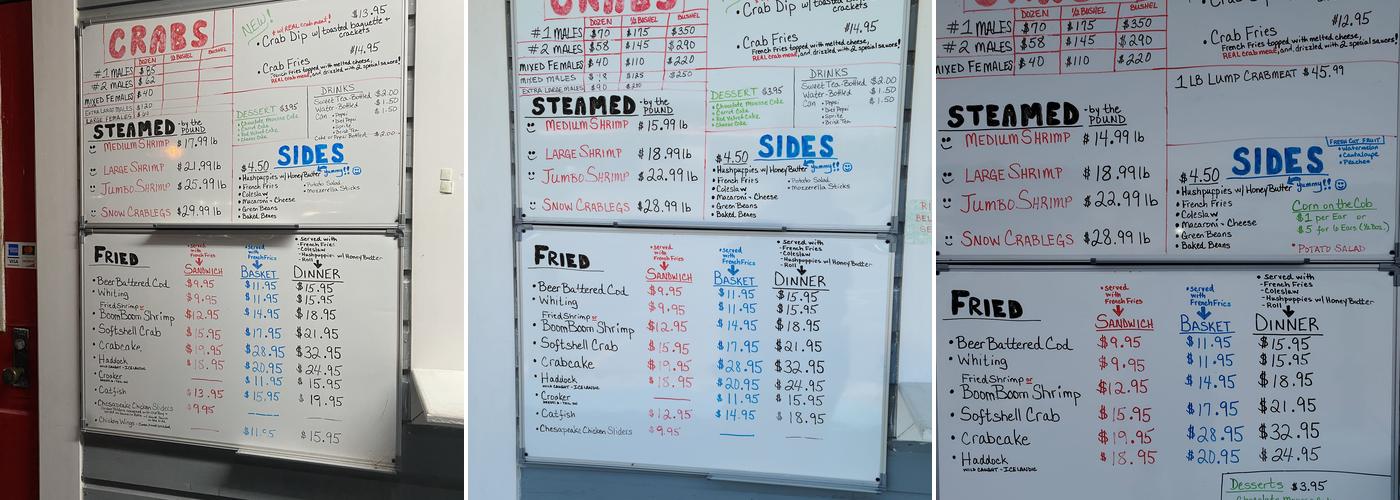 NEW!
w/ REAL crab meat!
$13.95
• Crab Dip w/ toasted baguette + crackets
$14.95
• Crab Fries
French Fries topped with melted cheese,
REAL crab meat, and drizzled with 2 special sauces!
CRABS
DOZEN ½ BUSHEL BUSHEL
#1 MALES $85
#2 MALES $62
MIXED FEMALES $40
EXTRA LARGE MALES $120
LARGE FEMALES
STEAMED -by the POUND
MEDIUM SHRIMP $17.99 lb
LARGE SHRIMP $21.99 lb
JUMBO SHRIMP $25.99 lb
SNOW CRABLEGS $29.99 lb
DESSERT $3.95
• Chocolate Mousse Cake
• Carrot Cake
• Red Velvet Cake
• Cheese Cake
DRINKS
Sweet Tea-Bottled $2.00
Water-Bottled $1.50
Can $1.50
• Pepsi
• Diet Pepsi
• Sprite
• Brisk Tea
$2.00
SIDES
$4.50 yummy!!
• Hushpuppies w/ Honey Butter
• French Fries
• Coleslaw
• Macaroni + Cheese
• Green Beans
• Baked Beans
• Potato Salad
• Mozzerella Sticks
FRIED
• served with French Fries
SANDWICH
• served with French Fries
BASKET
• served with
- French Fries
- Coleslaw
- Hushpuppies w/ Honey Butter
- Roll
DINNER
• Beer Battered Cod $9.95 $11.95 $15.95
• Whiting $9.95 $11.95 $15.95
Fried Shrimp or
• BoomBoom Shrimp $12.95 $14.95 $18.95
• Softshell Crab $15.95 $17.95 $21.95
• Crabcake $19.95 $28.95 $32.95
• Haddock $18.95 $20.95 $24.95
WILD CAUGHT - ICELANDIC
• Croaker $11.95 $15.95
• Catfish $13.95 $15.95 $19.95
• Chesapeake Chicken Sliders $9.95
• Chicken Wings $11.95 $15.95
CRABS
DOZEN ½ BUSHEL BUSHEL
#1 MALES $70 $175 $350
#2 MALES $58 $145 $290
MIXED FEMALES $40 $110 $220
MIXED MALES $125 $250
EXTRA LARGE MALES $90
• Crab Dip w/ toasted baguette + crackets
$14.95
• Crab Fries
French Fries topped with melted cheese,
REAL crab meat, and drizzled with 2 special sauces!
STEAMED -by the POUND
MEDIUM SHRIMP $15.99 lb
LARGE SHRIMP $18.99 lb
JUMBO SHRIMP $22.99 lb
SNOW CRABLEGS $28.99 lb
DESSERT $3.95
• Chocolate Mousse Cake
• Carrot Cake
• Red Velvet Cake
• Cheese Cake
DRINKS
Sweet Tea-Bottled $2.00
Water-Bottled $1.50
Can $1.50
• Pepsi
• Diet Pepsi
• Sprite
• Brisk Tea
SIDES
$4.50 yummy!!
• Hushpuppies w/ Honey Butter
• French Fries
• Coleslaw
• Macaroni + Cheese
• Green Beans
• Baked Beans
• Potato Salad
• Mozzerella Sticks
FRIED
• served with French Fries
SANDWICH
• served with French Fries
BASKET
• served with
- French Fries
- Coleslaw
- Hushpuppies w/ Honey Butter
- Roll
DINNER
• Beer Battered Cod $9.95 $11.95 $15.95
• Whiting $9.95 $11.95 $15.95
Fried Shrimp or
• BoomBoom Shrimp $12.95 $14.95 $18.95
• Softshell Crab $15.95 $17.95 $21.95
• Crabcake $19.95 $28.95 $32.95
• Haddock $18.95 $20.95 $24.95
WILD CAUGHT - ICELANDIC
• Croaker $11.95 $15.95
• Catfish $12.95 $14.95 $18.95
• Chesapeake Chicken Sliders $9.95
DOZEN ½ BUSHEL BUSHEL
#1 MALES $70 $175 $350
#2 MALES $58 $145 $290
MIXED FEMALES $40 $110 $220
$12.95
• Crab Fries
French Fries topped with melted cheese,
REAL crab meat, and drizzled with 2 special sauces!
1 LB LUMP CRABMEAT $45.99
STEAMED -by the POUND
MEDIUM SHRIMP $14.99 lb
LARGE SHRIMP $18.99 lb
JUMBO SHRIMP $22.99 lb
SNOW CRABLEGS $28.99 lb
FRESH CUT FRUIT
• Watermelon
• Cantaloupe
• Peaches
SIDES
$4.50 yummy!!
• Hushpuppies w/ Honey Butter
• French Fries
• Coleslaw
• Macaroni + Cheese
• Green Beans
• Baked Beans
Corn on the Cob
$1 per Ear or
$5 for 6 Ears (½ Doz.)
• POTATO SALAD
FRIED
• served with French Fries
SANDWICH
• served with French Fries
BASKET
• served with
- French Fries
- Coleslaw
- Hushpuppies w/ Honey Butter
- Roll
DINNER
• Beer Battered Cod $9.95 $11.95 $15.95
• Whiting $9.95 $11.95 $15.95
Fried Shrimp or
• BoomBoom Shrimp $12.95 $14.95 $18.95
• Softshell Crab $15.95 $17.95 $21.95
• Crabcake $19.95 $28.95 $32.95
• Haddock $18.95 $20.95 $24.95
WILD CAUGHT - ICELANDIC
Desserts $3.95